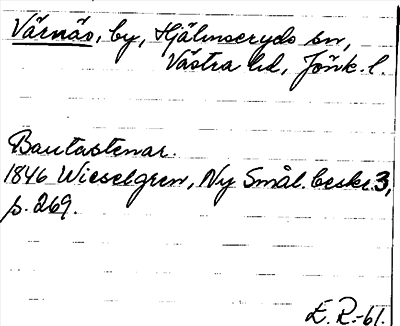 Värnäs, by, Hjälmseryds sn,
Västra hd, Jönk. l.
Bautastenar.
1846 Wieselgren, Ny Smål. beskr. 3,
s. 269.
E. R.-61.